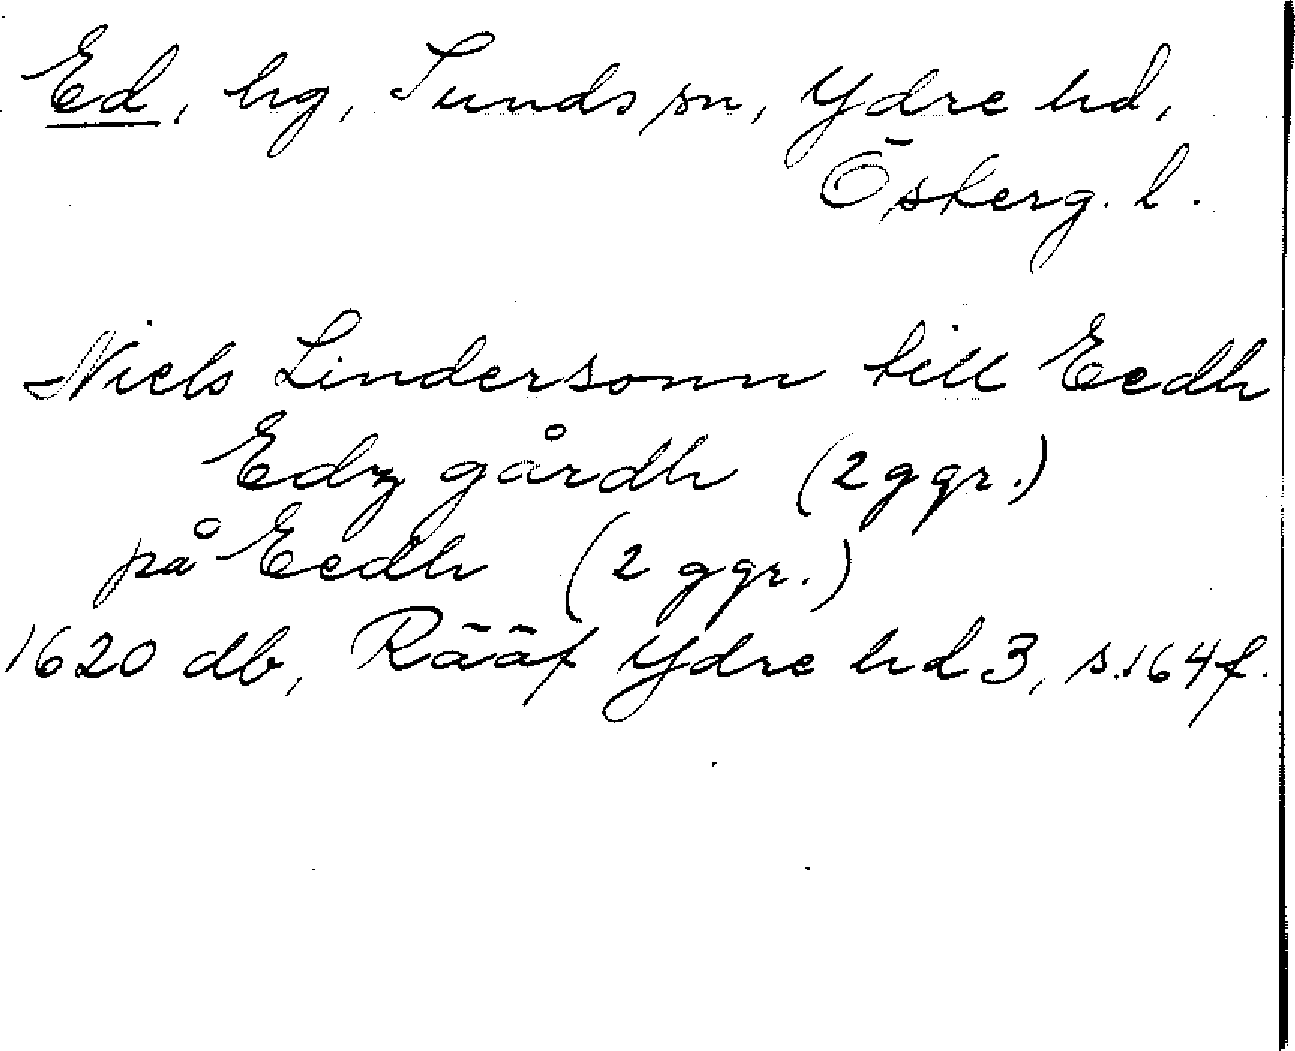 Ed, hg, Sunds sn, Ydre hd,
Österg. l.
Niels Lindersonn till Eedh
Edz gårdh (2 ggr.)
på Eedh (2 ggr.)
1620 db, Rääf Ydre hd 3, s. 164 f.